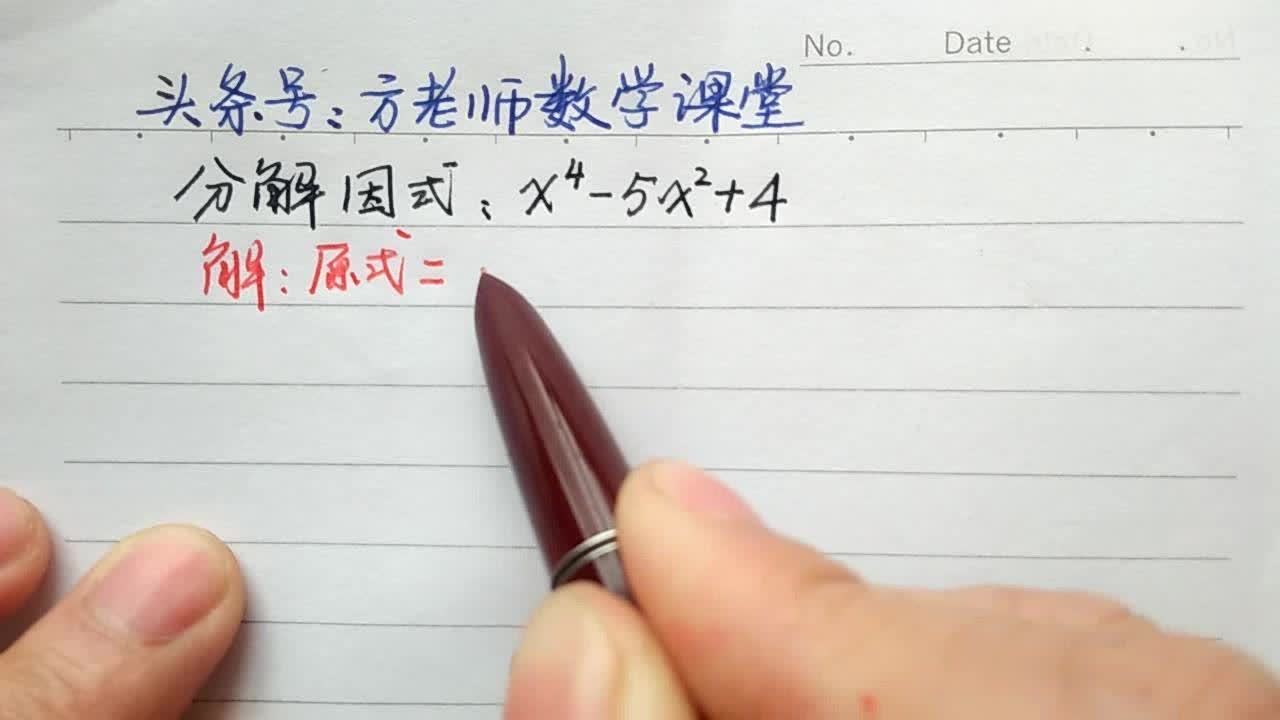 No. Date
头条号：方老师数学课堂
分解因式：x⁴-5x²+4
解：原式=